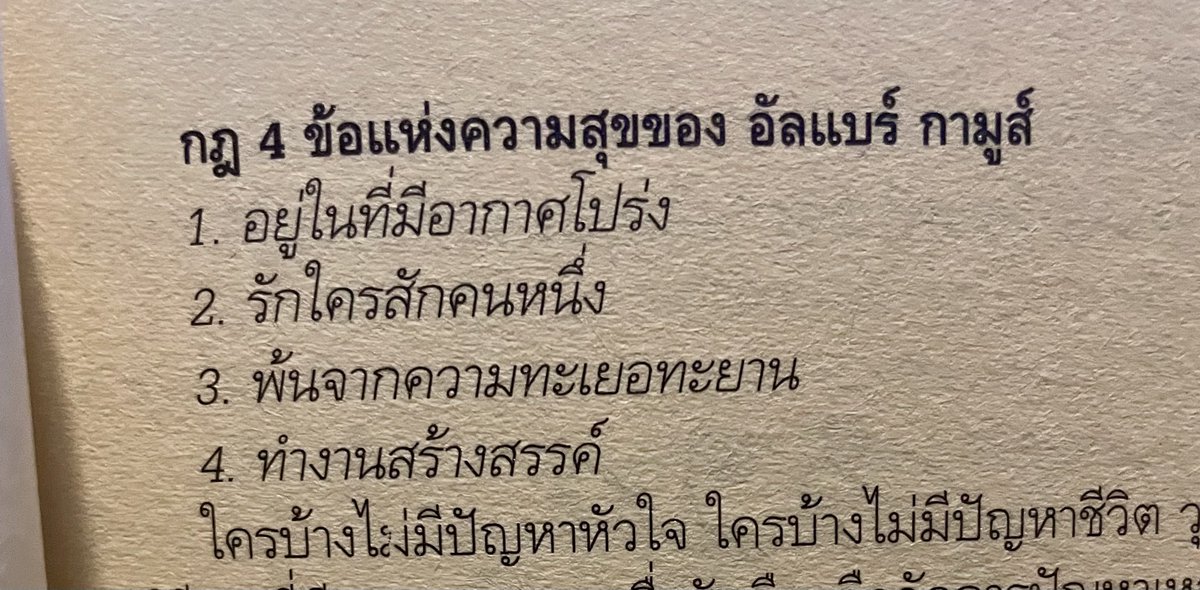 กฎ 4 ข้อแห่งความสุขของ อัลแบร์ กามูส์
1. อยู่ในที่มีอากาศโปร่ง
2. รักใครสักคนหนึ่ง
3. พ้นจากความทะเยอทะยาน
4. ทำงานสร้างสรรค์
ใครบ้างไม่มีปัญหาหัวใจ ใครบ้างไม่มีปัญหาชีวิต